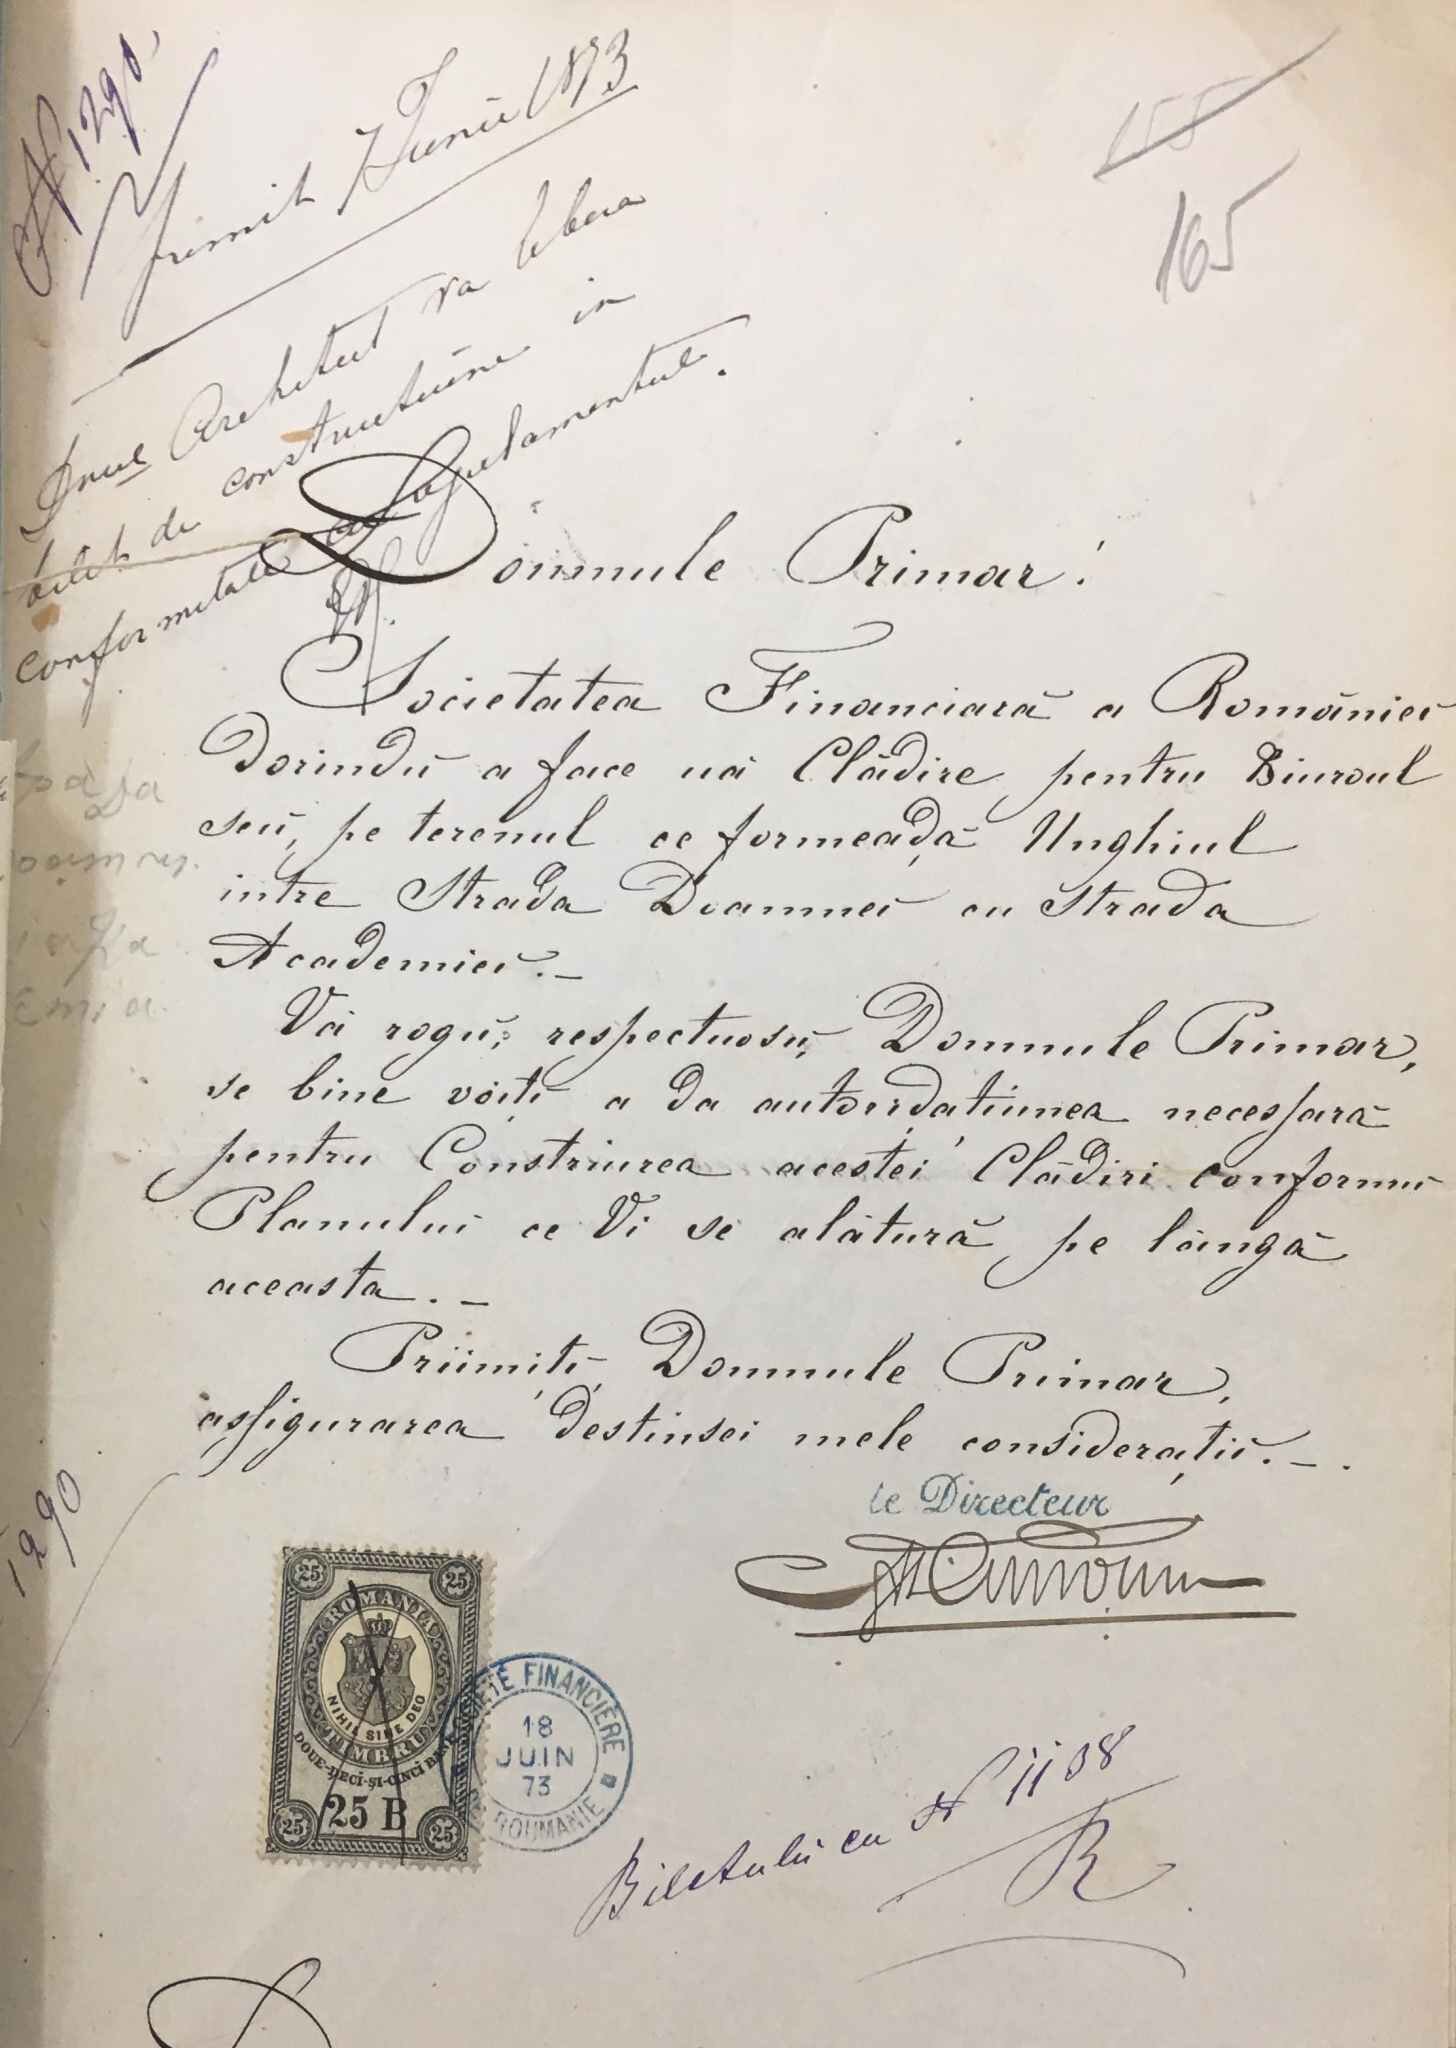 N 1290.
Primit 7 Junie 1873
155
165
Dnul Architect va libera
bilet de constructiune in
conformitate cu Regulamentul.
Domnule Primar!
Societatea Financiară a Românieĭ
Dorindŭ a face uă Clădire pentru Biuroul
seŭ, pe terenul ce formeaḑă Unghiul
intre Strada Doamneĭ cu Strada
Academieĭ. –
Vă rogŭ, respectuosŭ, Domnule Primar,
se bine voițĭ a da autorisḑatiunea necessară
pentru Construirea acesteĭ Clădiri conformŭ
Planuluĭ ce Vi se alătură pe lângă
aceasta. –
Priimițĭ, Domnule Primar,
assigurarea destinsei mele considerațiĭ. – .
le Directeur
1290
25
25
ROMANIA
NIHIL SINE DEO
TIMBRU
DOUE-DECI-ȘI-CINCI BANI
25 B
25
25
SOCIÉTÉ FINANCIÈRE
18
JUIN
73
DE ROUMANIE
Biletulŭ cu N 1138
R